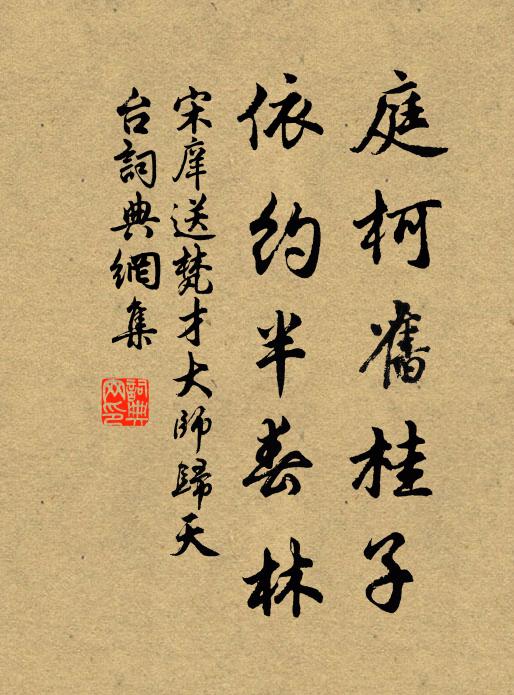 庭柯舊桂子
依約半春林
宋庠送梵才大師歸天
台詞典網集
詞典